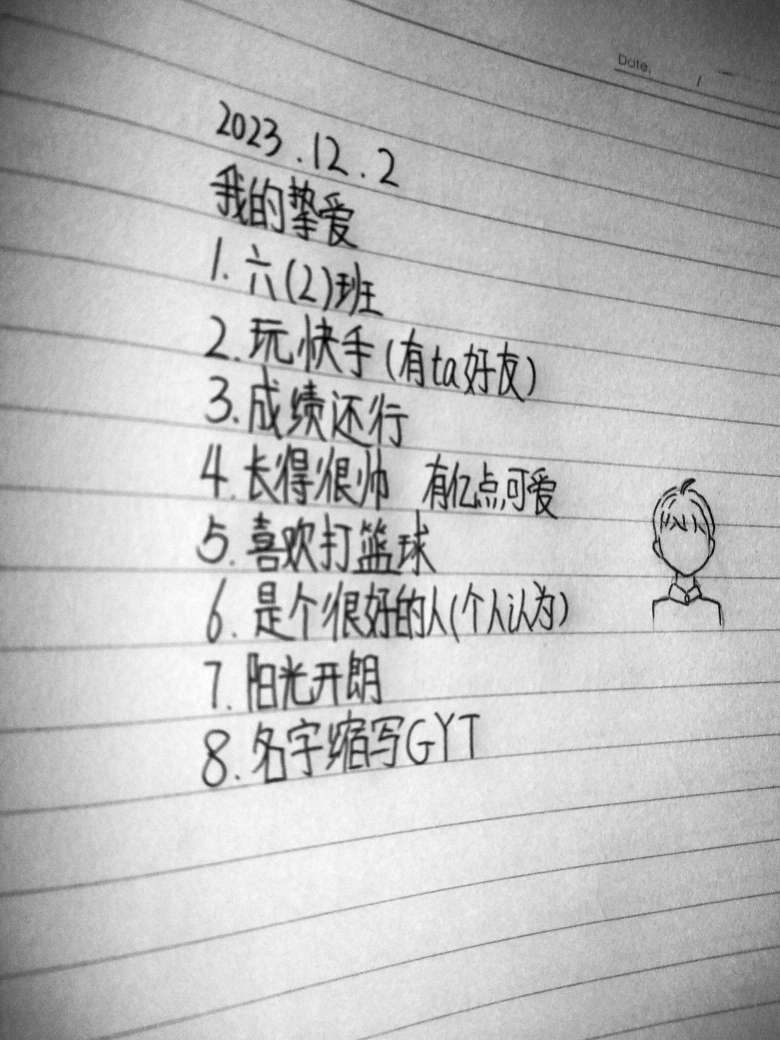 Date. /
2023.12.2
我的挚爱
1. 六(2)班
2. 玩快手(有ta好友)
3. 成绩还行
4. 长得很帅 有亿点可爱
5. 喜欢打篮球
6. 是个很好的人(个人认为)
7. 阳光开朗
8. 名字缩写GYT